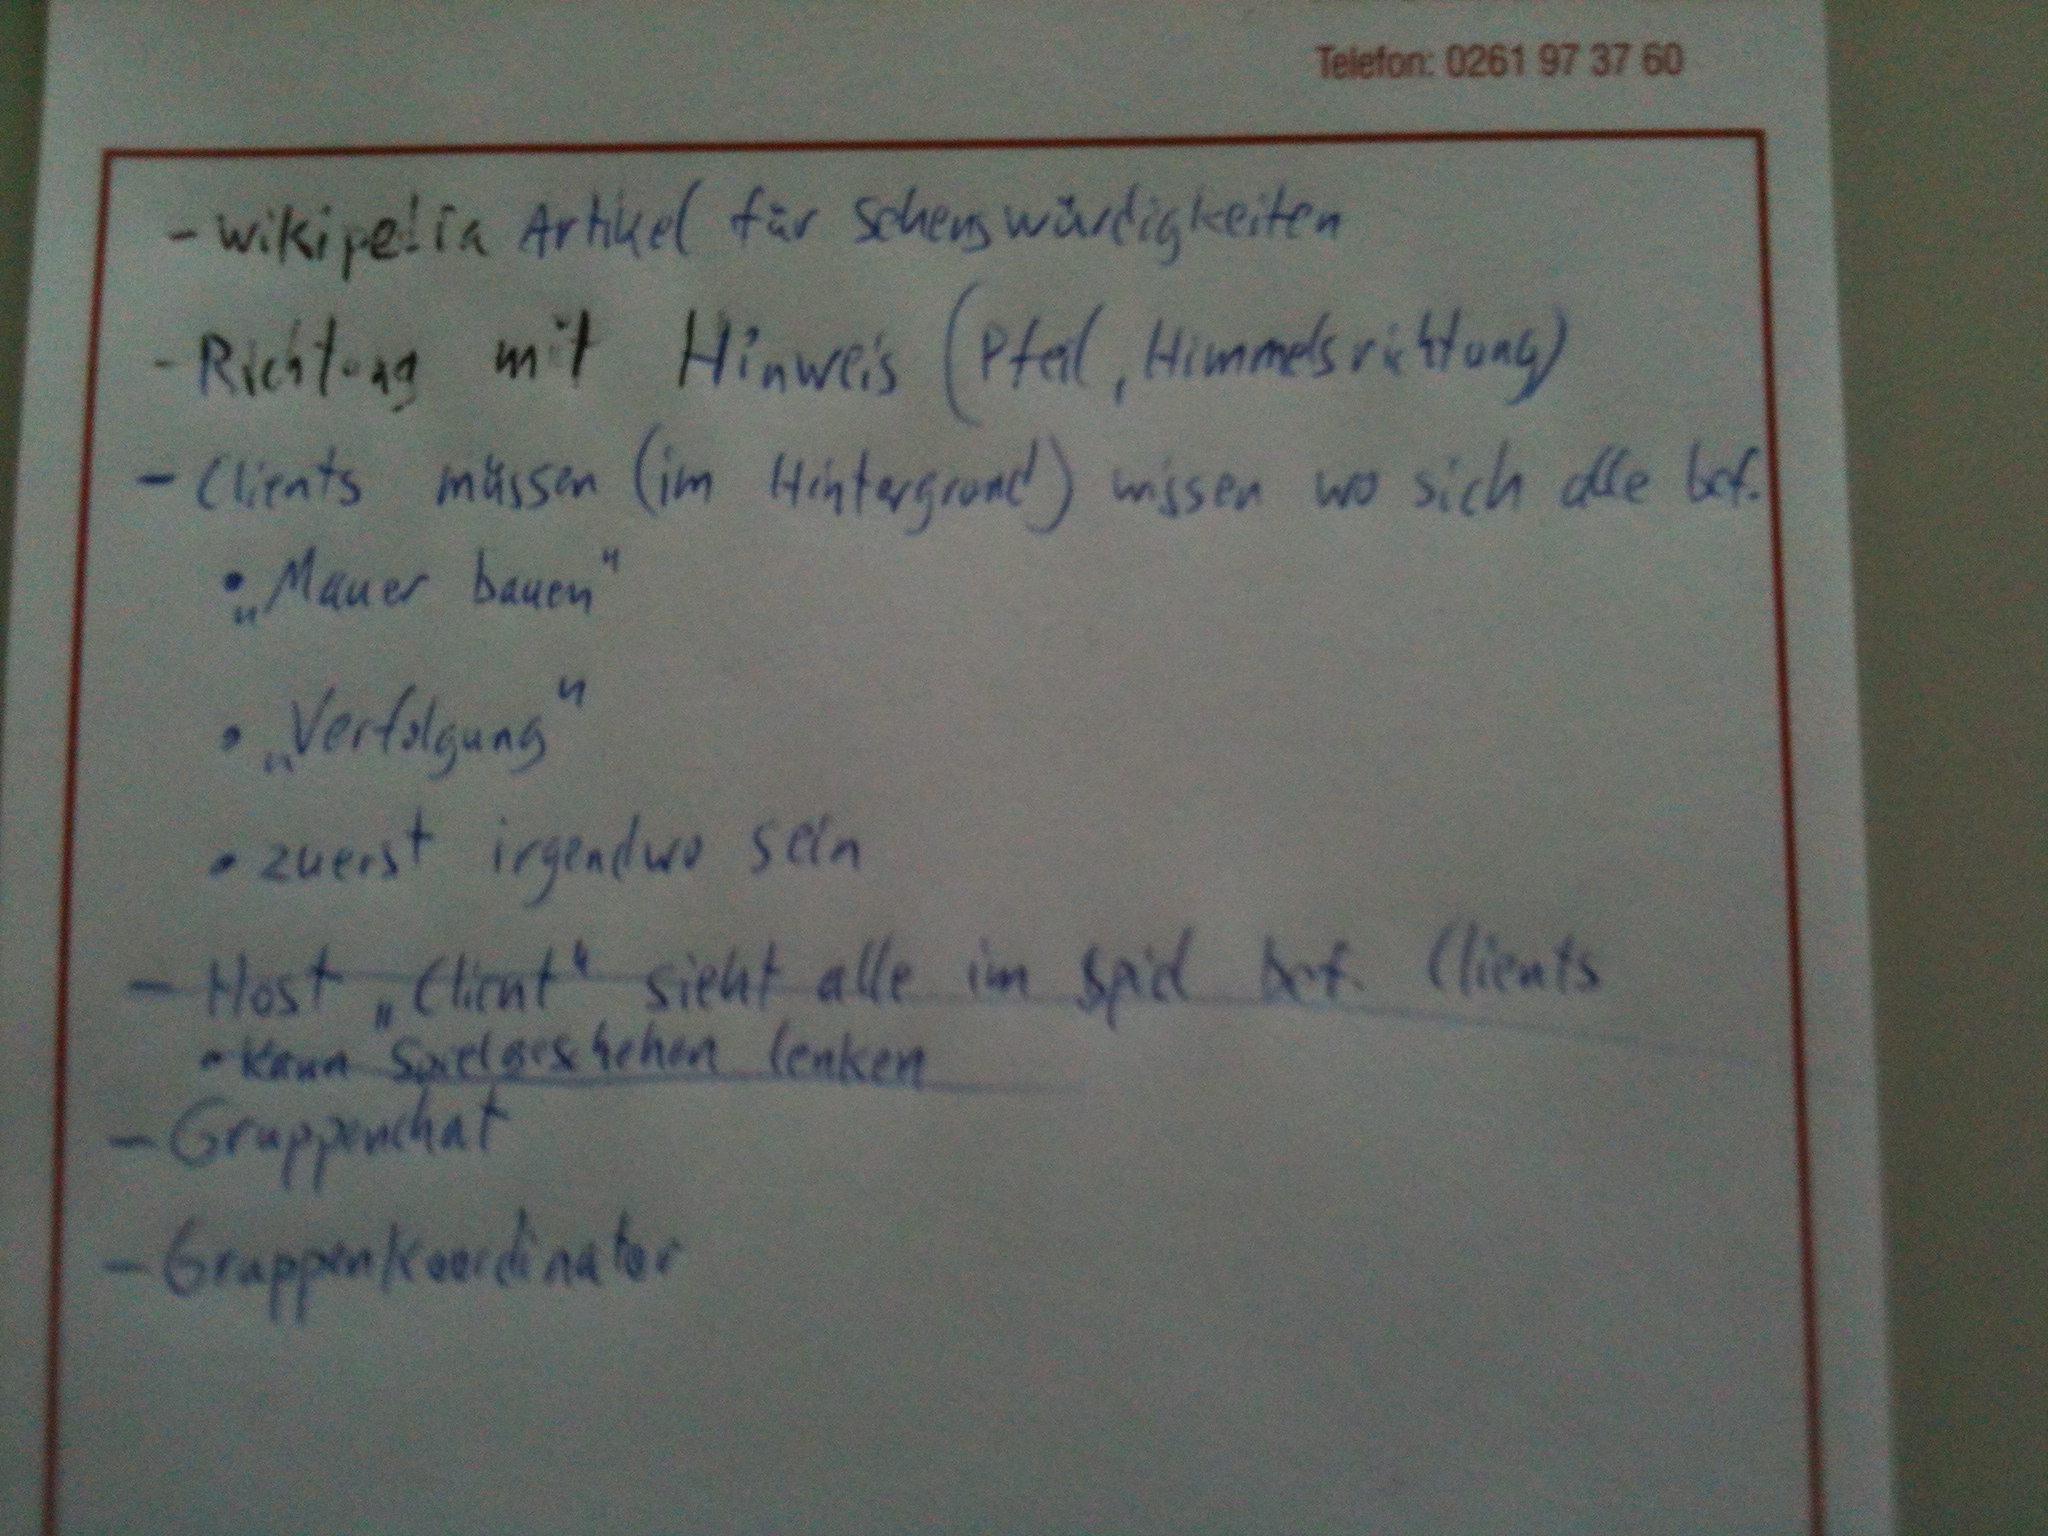 Telefon: 0261 97 37 60
- Wikipedia Artikel für Sehenswürdigkeiten
- Richtung mit Hinweis (Pfeil, Himmelsrichtung)
- Clients müssen (im Hintergrund) wissen wo sich alle bef.
• „Mauer bauen"
• „Verfolgung"
• zuerst irgendwo sein
- Host „Client" sieht alle im Spiel bef. Clients
• Kann Spielgeschehen lenken
- Gruppenchat
- Gruppenkoordinator